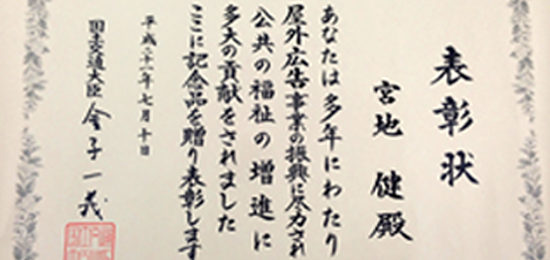 表彰状
宮地 健殿
あなたは多年にわたり
屋外広告事業の振興に尽力され
公共の福祉の増進に
多大の貢献をされました
ここに記念品を贈り表彰します
平成二十一年七月十日
国土交通大臣 金子一義